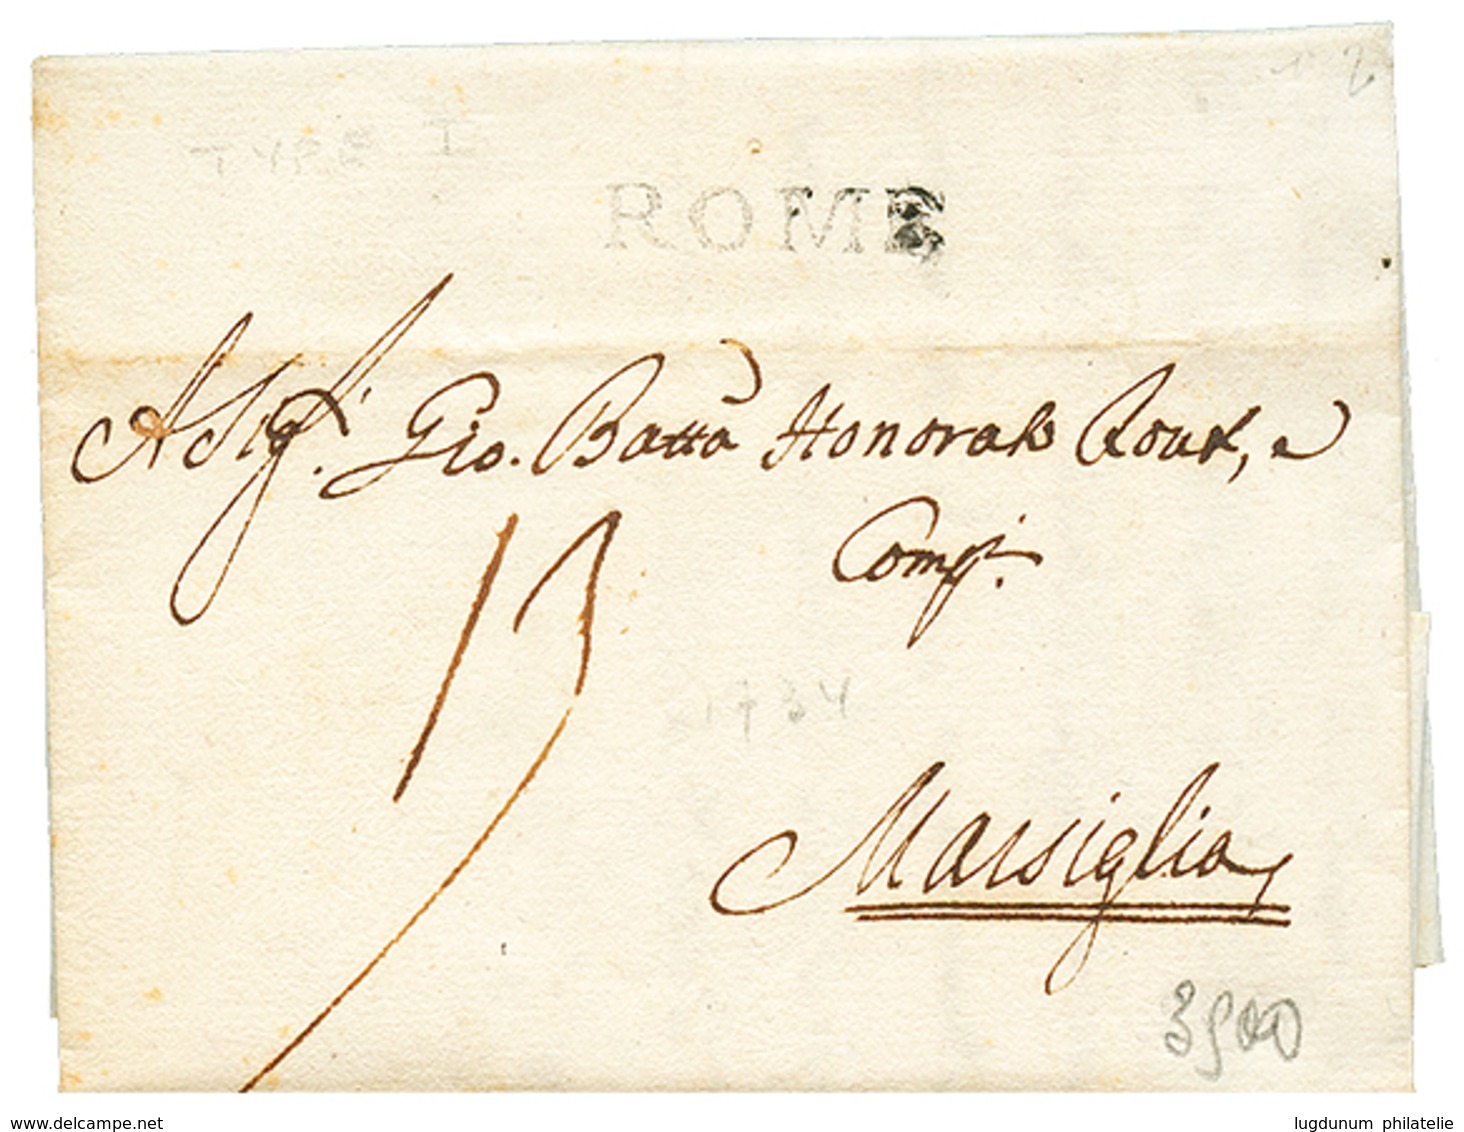 2
TYPE I
ROME
A Sigri. Gio. Batta Honorato Roux, e
Comp.
17
1734
Marsiglia
3500
delcampe.net
lugdunum philatelie